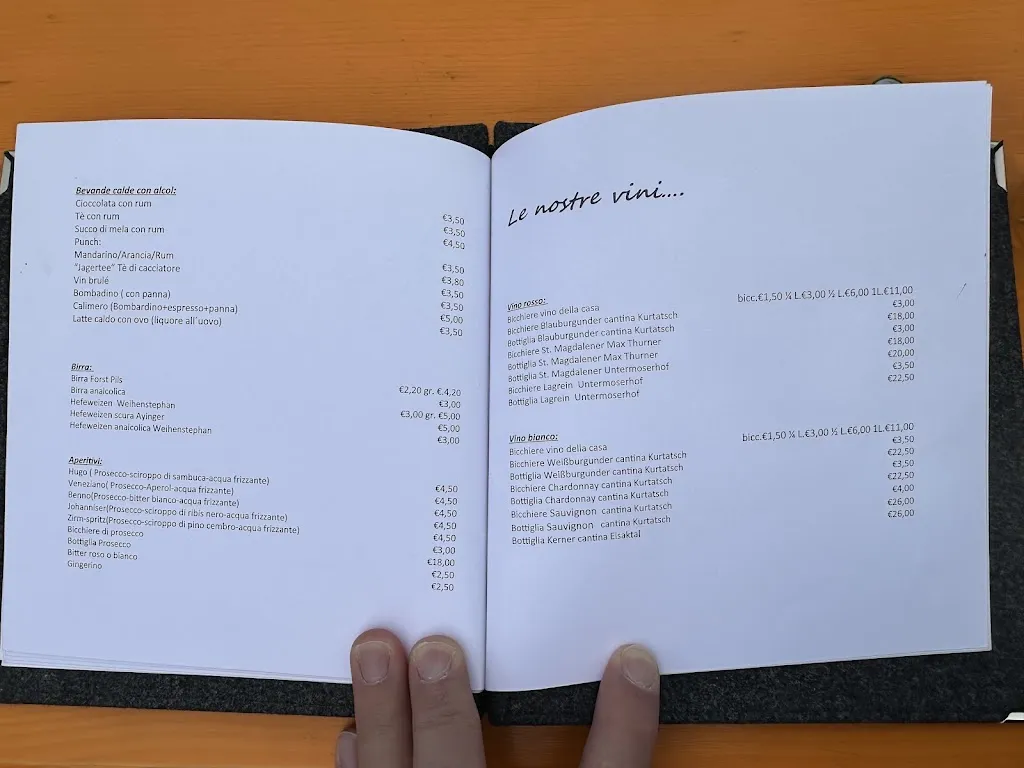 Bevande calde con alcol:
Cioccolata con rum €3,50
Tè con rum €3,50
Succo di mela con rum €4,50
Punch:
Mandarino/Arancia/Rum €3,50
"Jagertee" Tè di cacciatore €3,80
Vin brulé €3,50
Bombadino ( con panna) €3,50
Calimero (Bombardino+espresso+panna) €5,00
Latte caldo con ovo (liquore all´uovo) €3,50
Birra:
Birra Forst Pils €2,20 gr. €.4,20
Birra anaicolica €3,00
Hefeweizen Weihenstephan €3,00 gr. €5,00
Hefeweizen scura Ayinger €5,00
Hefeweizen anaicolica Weihenstephan €3,00
Aperitivi:
Hugo ( Prosecco-sciroppo di sambuca-acqua frizzante) €4,50
Veneziano( Prosecco-Aperol-acqua frizzante) €4,50
Benno(Prosecco-bitter bianco-acqua frizzante) €4,50
Johanniser(Prosecco-sciroppo di ribis nero-acqua frizzante) €4,50
Zirm-spritz(Prosecco-sciroppo di pino cembro-acqua frizzante) €4,50
Bicchiere di prosecco €3,00
Bottiglia Prosecco €18,00
Bitter roso o bianco €2,50
Gingerino €2,50
Le nostre vini....
Vino rosso:
Bicchiere vino della casa bicc.€1,50 ¼ L.€3,00 ½ L.€6,00 1L.€11,00
Bicchiere Blauburgunder cantina Kurtatsch €3,00
Bottiglia Blauburgunder cantina Kurtatsch €18,00
Bicchiere St. Magdalener Max Thurner €3,00
Bottiglia St. Magdalener Max Thurner €18,00
Bottiglia St. Magdalener Untermoserhof €20,00
Bicchiere Lagrein Untermoserhof €3,50
Bottiglia Lagrein Untermoserhof €22,50
Vino bianco:
Bicchiere vino della casa bicc.€1,50 ¼ L.€3,00 ½ L.€6,00 1L.€11,00
Bicchiere Weißburgunder cantina Kurtatsch €3,50
Bottiglia Weißburgunder cantina Kurtatsch €22,50
Bicchiere Chardonnay cantina Kurtatsch €3,50
Bottiglia Chardonnay cantina Kurtatsch €22,50
Bicchiere Sauvignon cantina Kurtatsch €4,00
Bottiglia Sauvignon cantina Kurtatsch €26,00
Bottiglia Kerner cantina Eisaktal €26,00